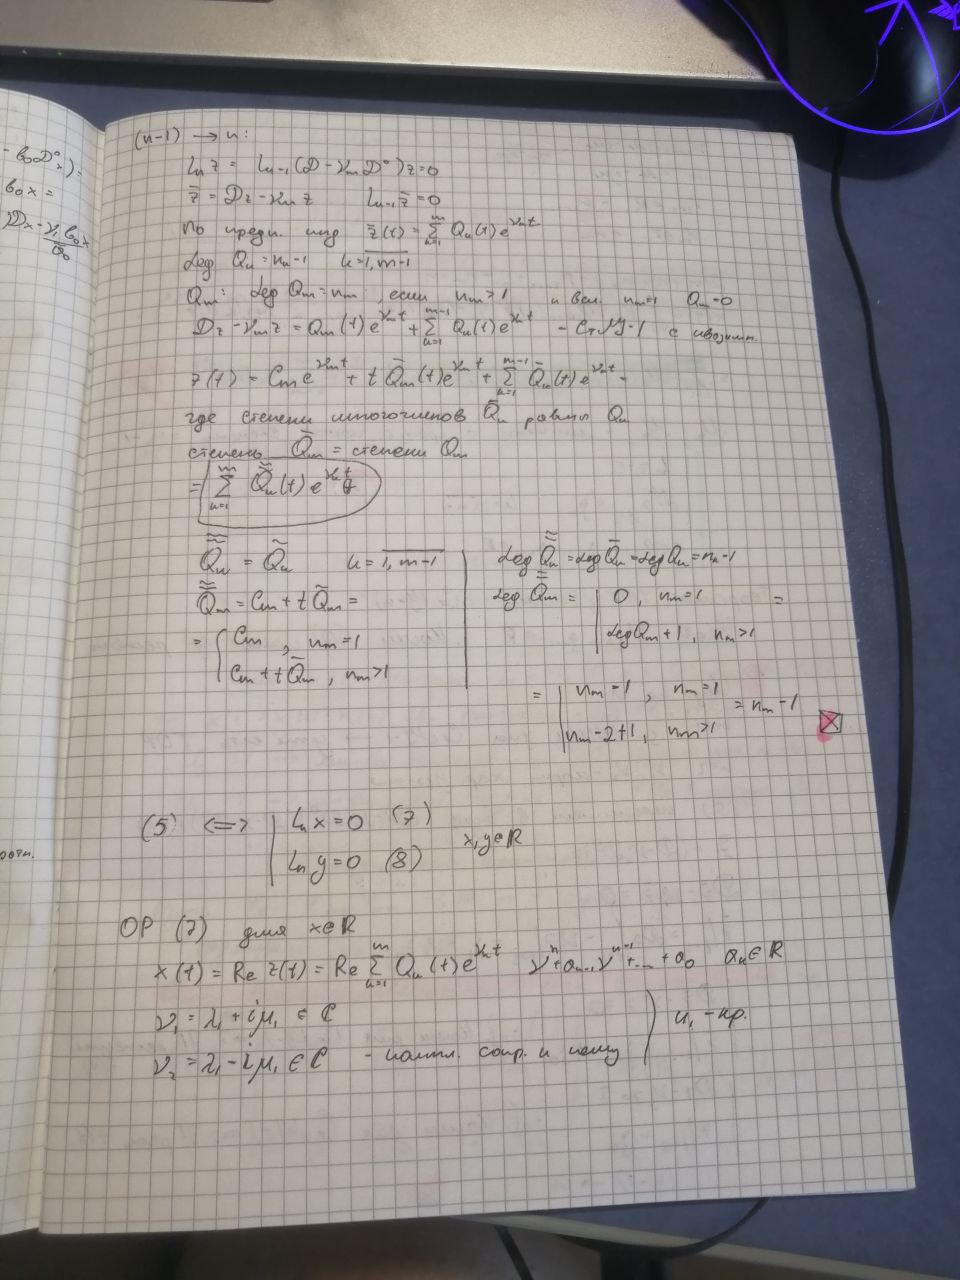 - b₀D°ₓ) =
b₀x =
Dx - ν₁b₀x
(n-1) → n:
Lₙ z = Lₙ₋₁ (D - νₘD°) z = 0
z̄ = Dz - νₘ z    Lₙ₋₁ z̄ = 0
По предп. инд z̄(t) = ∑ₖ₌₁ᵐ Qₖ(t) e^{νₖt}
deg Qₖ = nₖ-1    k = \overline{1, m-1}
Qₘ: deg Qₘ = nₘ , если nₘ > 1    nₘ=1  Qₘ=0
Dz - νₘz = Qₘ(t) e^{νₘt} + ∑ₖ₌₁ᵐ⁻¹ Qₖ(t) e^{νₖt}
z(t) = Cₘ e^{νₘt} + t Q̄ₘ(t) e^{νₘt} + ∑ₖ₌₁ᵐ⁻¹ Q̄ₖ(t) e^{νₖt} -
где степени многочленов Q̄ₖ равны Qₖ
степень Q̄ₘ = степени Qₘ
= ∑ₖ₌₁ᵐ Q̃̃ₖ(t) e^{νₖt}
Q̃̃ₖ = Q̃ₖ    k = \overline{1, m-1}
Q̃̃ₘ = Cₘ + t Q̃ₘ =
= { Cₘ , nₘ = 1
Cₘ + t Q̄ₘ , nₘ > 1
deg Q̃̃ₖ = deg Q̄ₖ = deg Qₖ = nₖ - 1
deg Q̃̃ₘ = | 0 , nₘ = 1 =
deg Qₘ + 1 , nₘ > 1
= | nₘ - 1 , nₘ = 1 = nₘ - 1
nₘ - 2 + 1 , nₘ > 1
(5) <=> | Lₙ x = 0 (7)
Lₙ y = 0 (8)    x, y ∈ ℝ
ОР (7) для x ∈ ℝ
x(t) = Re z(t) = Re ∑ₖ₌₁ᵐ Qₖ(t) e^{νₖt}    νⁿ + aₙ₋₁νⁿ⁻¹ + ... + a₀    aₖ ∈ ℝ
ν₁ = λ₁ + iμ₁ ∈ ℂ
ν₂ = λ₁ - iμ₁ ∈ ℂ - компл. сопр. к нему    n₁ - кр.